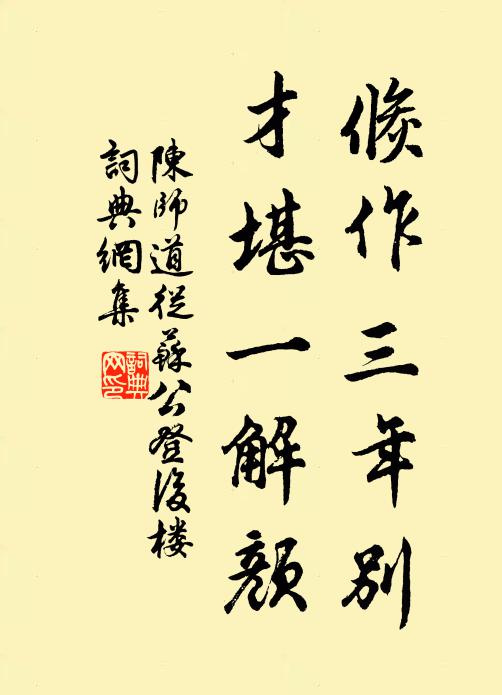 倐作三年別
才堪一解顏
陳師道從蘇公登後楼
詞典網集
詞典网印